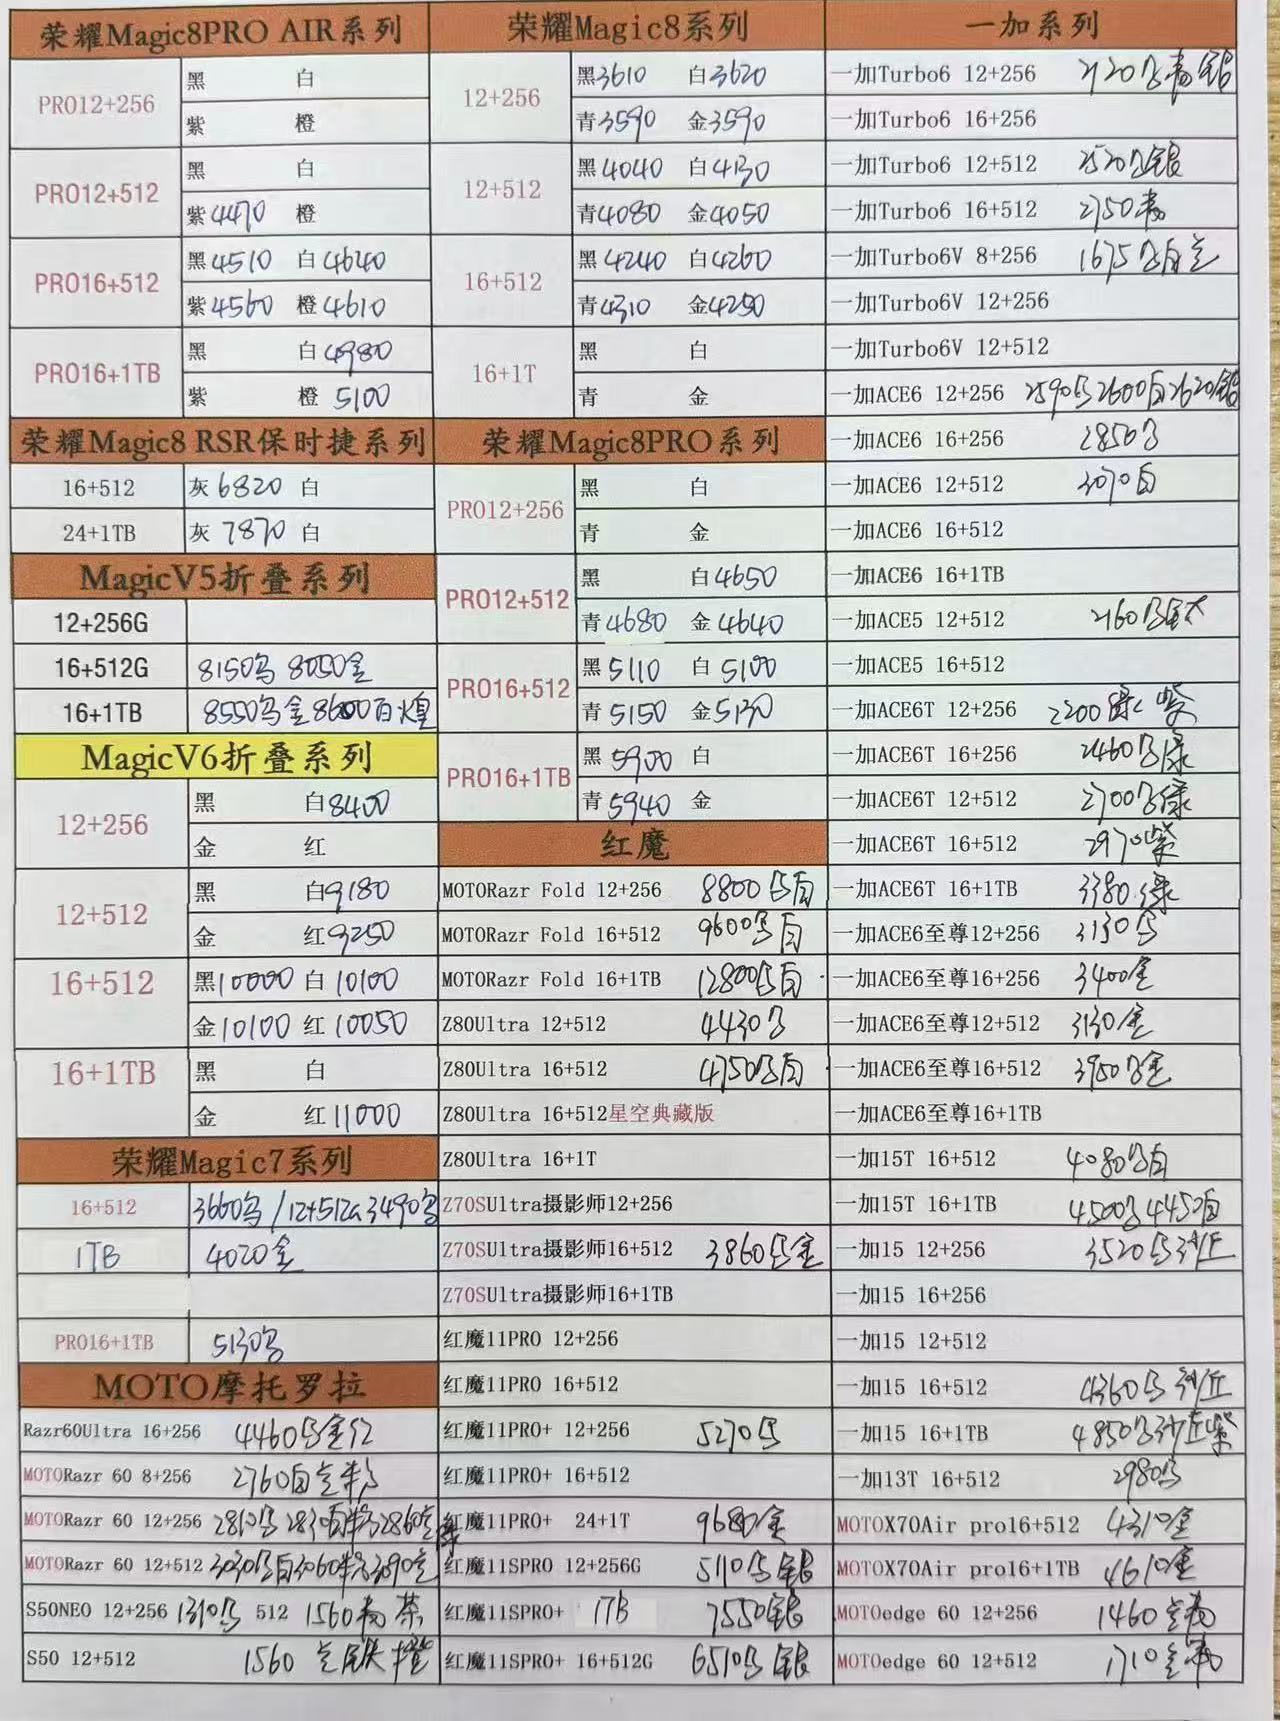 荣耀Magic8PRO AIR系列
PRO12+256
黑 白
紫 橙
PRO12+512
黑 白
紫4470 橙
PRO16+512
黑4510 白4640
紫4560 橙4610
PRO16+1TB
黑 白4980
紫 橙5100
荣耀Magic8 RSR保时捷系列
16+512 灰6820 白
24+1TB 灰7870 白
MagicV5折叠系列
12+256G
16+512G 8150乌 8050金
16+1TB 8550乌金8600白
MagicV6折叠系列
12+256
黑 白8400
金 红
12+512
黑 白9180
金 红9250
16+512
黑10000 白10100
金10100 红10050
16+1TB
黑 白
金 红11000
荣耀Magic7系列
16+512 3660乌/12+512G3490乌
1TB 4020金
PRO16+1TB 5130乌
MOTO摩托罗拉
Razr60Ultra 16+256 4460乌金红
MOTORazr 60 8+256 2760白
MOTORazr 60 12+256 2810乌
MOTORazr 60 12+512 3030乌白
S50NEO 12+256 1310乌 512 1560
S50 12+512 1560
荣耀Magic8系列
12+256
黑3610 白3620
青3590 金3590
12+512
黑4040 白4130
青4080 金4050
16+512
黑4240 白4260
青4310 金4250
16+1T
黑 白
青 金
荣耀Magic8PRO系列
PRO12+256
黑 白
青 金
PRO12+512
黑 白4650
青4680 金4640
PRO16+512
黑5110 白5100
青5150 金5130
PRO16+1TB
黑5900 白
青5940 金
红魔
MOTORazr Fold 12+256 8800乌白
MOTORazr Fold 16+512 9600乌白
MOTORazr Fold 16+1TB 12800乌白
Z80Ultra 12+512 4430乌
Z80Ultra 16+512 4750乌白
Z80Ultra 16+512星空典藏版
Z80Ultra 16+1T
Z70SUltra摄影师12+256
Z70SUltra摄影师16+512 3860乌金
Z70SUltra摄影师16+1TB
红魔11PRO 12+256
红魔11PRO 16+512
红魔11PRO+ 12+256 5270乌
红魔11PRO+ 16+512
红魔11PRO+ 24+1T 9680金
红魔11SPRO 12+256G 5110乌银
红魔11SPRO+ 1TB 7550银
红魔11SPRO+ 16+512G 6510乌银
一加系列
一加Turbo6 12+256 2120乌青银
一加Turbo6 16+256
一加Turbo6 12+512 2520乌银
一加Turbo6 16+512 2750青
一加Turbo6V 8+256 1675乌白
一加Turbo6V 12+256
一加Turbo6V 12+512
一加ACE6 12+256 2590乌2600白2620银
一加ACE6 16+256 2850乌
一加ACE6 12+512 3070白
一加ACE6 16+512
一加ACE6 16+1TB
一加ACE5 12+512 2160乌
一加ACE5 16+512
一加ACE6T 12+256 2200绿紫
一加ACE6T 16+256 2460乌绿
一加ACE6T 12+512 2700乌绿
一加ACE6T 16+512 2970紫
一加ACE6T 16+1TB 3380绿
一加ACE6至尊12+256 3130乌
一加ACE6至尊16+256 3400金
一加ACE6至尊12+512 3130金
一加ACE6至尊16+512 3950乌金
一加ACE6至尊16+1TB
一加15T 16+512 4080乌白
一加15T 16+1TB 4500乌4450白
一加15 12+256 3520乌沙丘
一加15 16+256
一加15 12+512
一加15 16+512 4360乌沙丘
一加15 16+1TB 4850乌沙丘紫
一加13T 16+512 2980乌
MOTOX70Air pro16+512 4310金
MOTOX70Air pro16+1TB 4610金
MOTOedge 60 12+256 1460
MOTOedge 60 12+512 1710